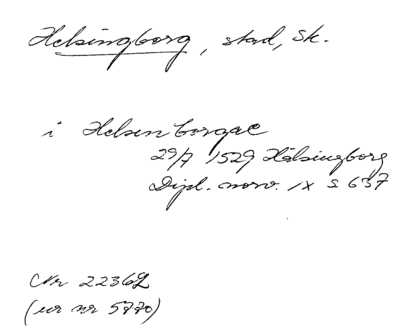 Helsingborg, stad, Sk.
i Helsenborgae
29/7 1529 Hälsingborg
Dipl. norv. IX s 637
CNr 2236
(ur nr 5770)